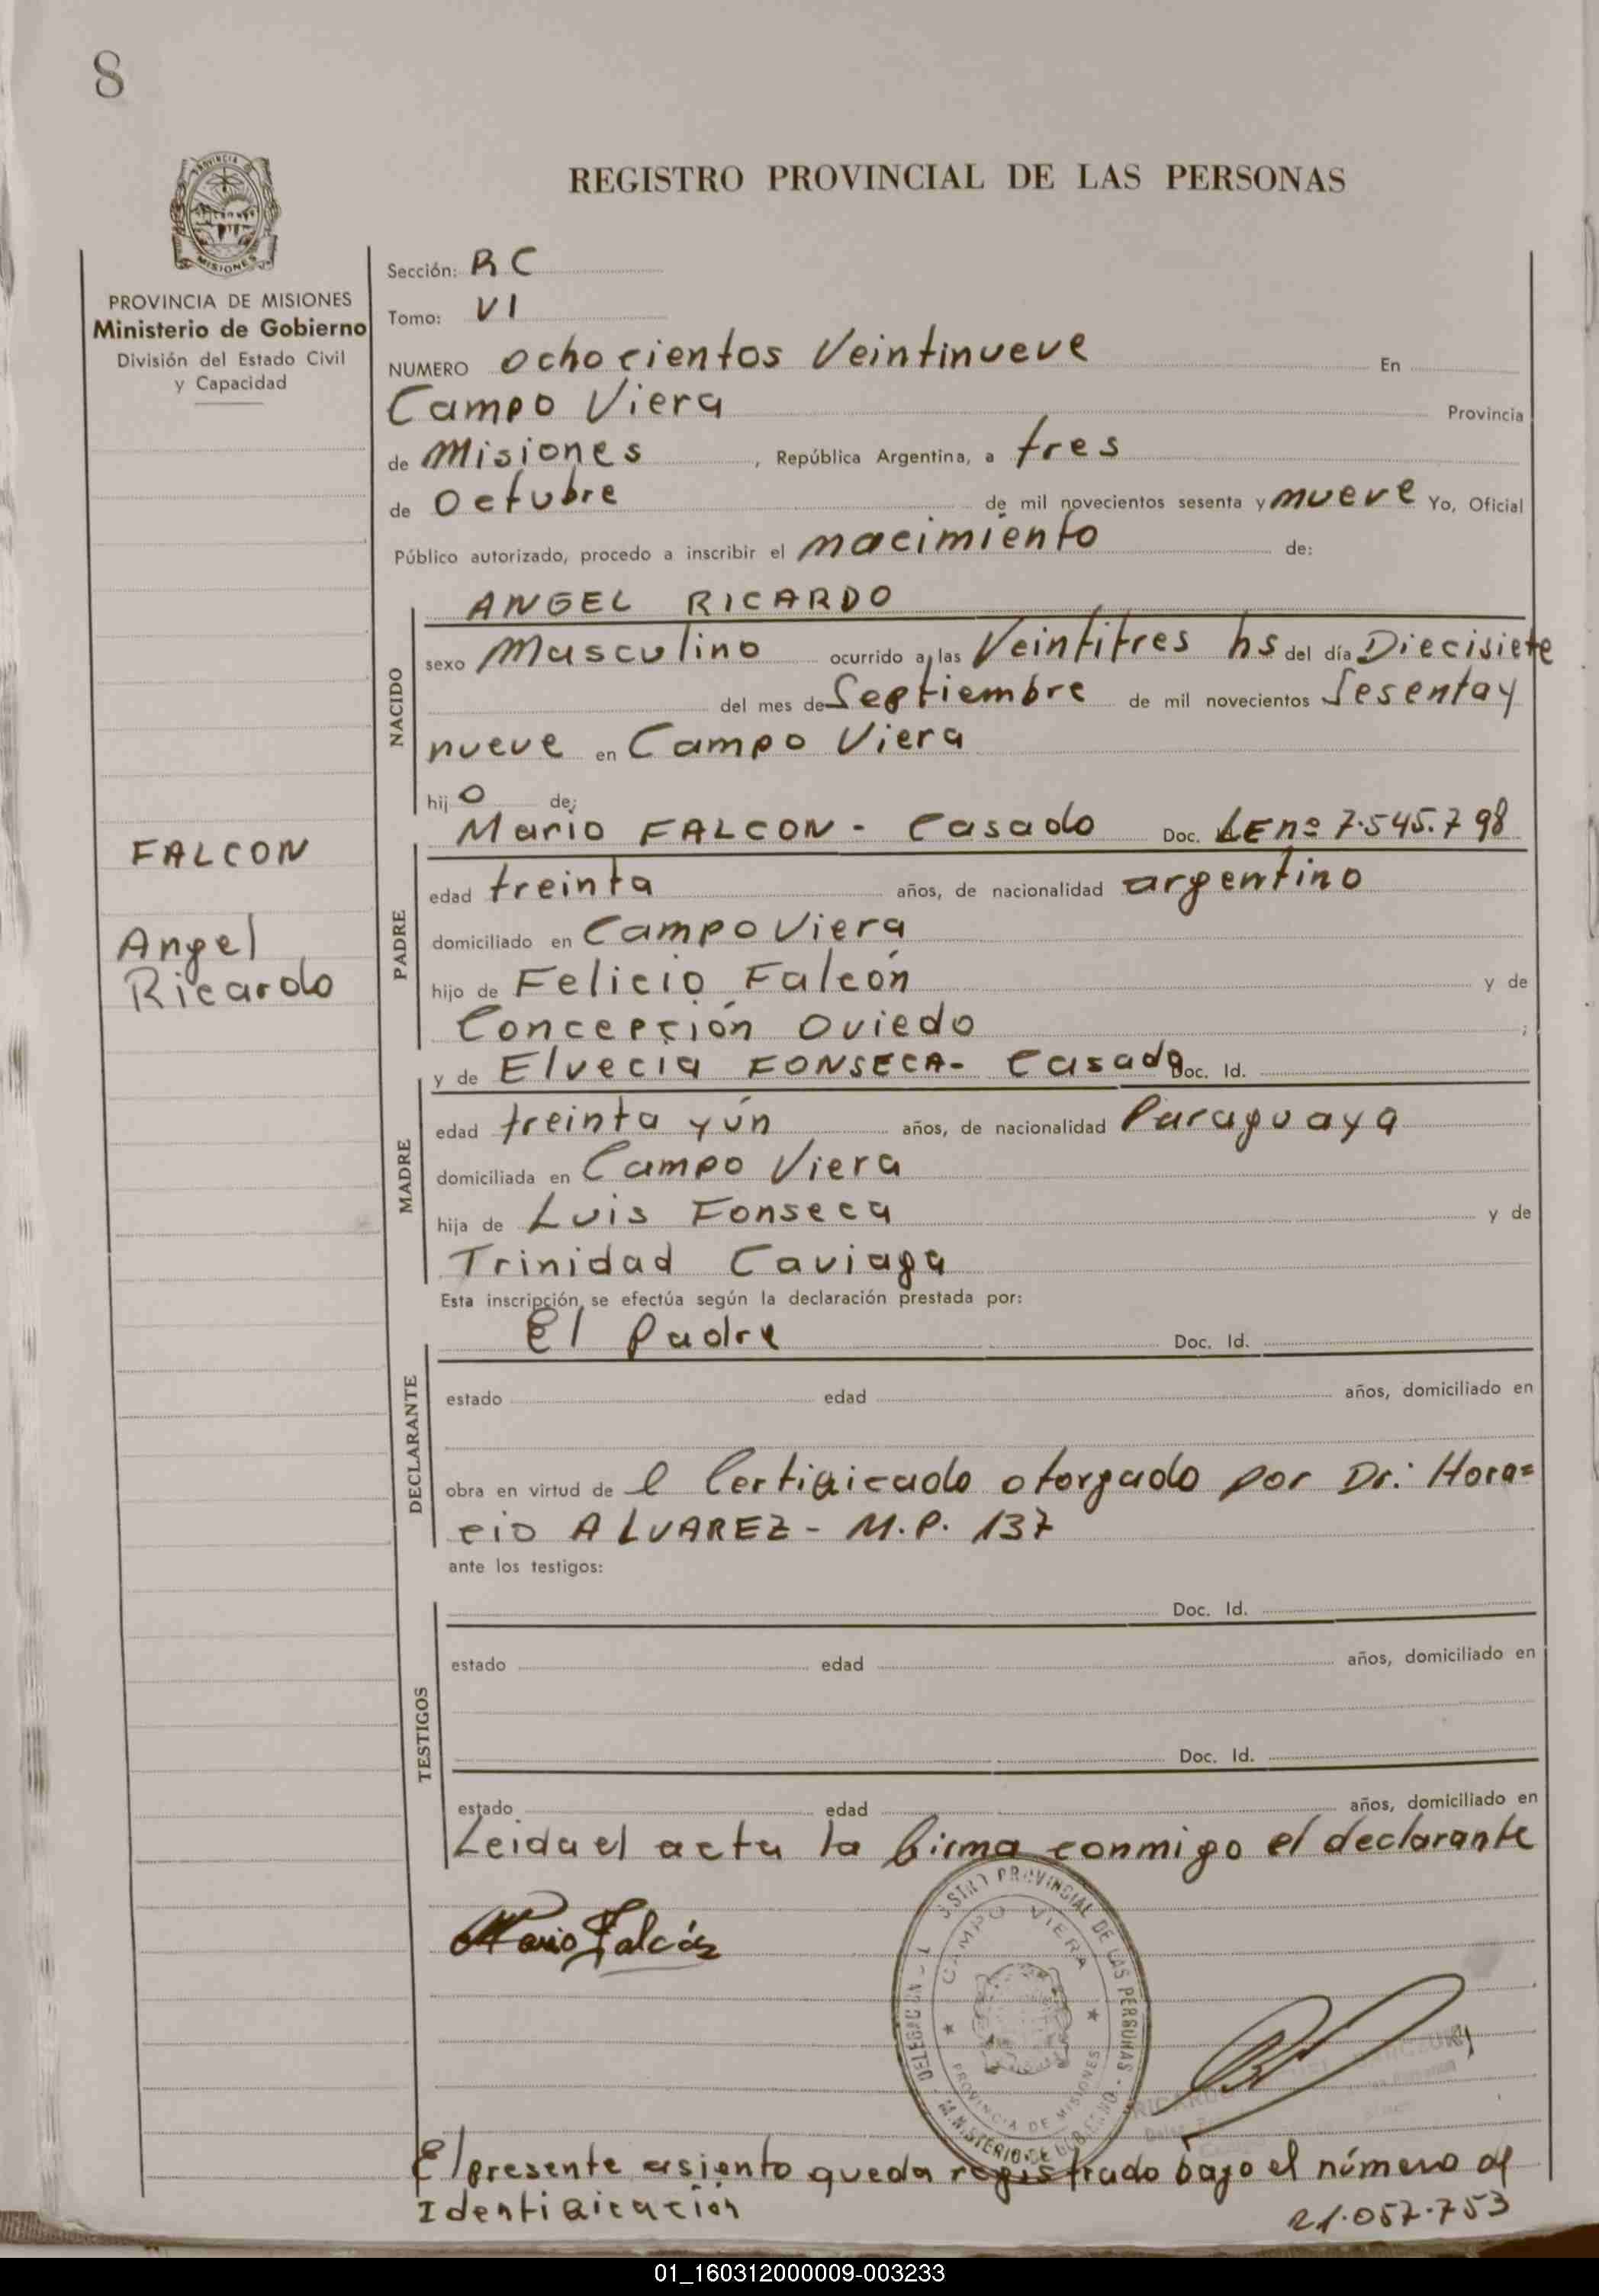 8
PROVINCIA
MISIONES
PROVINCIA DE MISIONES
Ministerio de Gobierno
División del Estado Civil
y Capacidad
FALCON
Angel
Ricardo
REGISTRO PROVINCIAL DE LAS PERSONAS
Sección: RC
Tomo: VI
NUMERO Ochocientos Veintinueve En
Campo Viera Provincia
de Misiones, República Argentina, a tres
de Octubre de mil novecientos sesenta y nueve Yo, Oficial
Público autorizado, procedo a inscribir el nacimiento de:
NACIDO
ANGEL RICARDO
sexo Masculino ocurrido a las Veintitres hs del día Diecisiete
del mes de Septiembre de mil novecientos Sesenta y
nueve en Campo Viera
hijo de:
PADRE
Mario FALCON - Casado Doc. LE nº 7.545.798
edad treinta años, de nacionalidad argentino
domiciliado en Campo Viera
hijo de Felicio Falcón y de
Concepción Oviedo ;
MADRE
y de Elvecia FONSECA - Casada Doc. Id.
edad treinta y ún años, de nacionalidad Paraguaya
domiciliada en Campo Viera
hija de Luis Fonseca y de
Trinidad Caviaga
Esta inscripción se efectúa según la declaración prestada por:
DECLARANTE
El Padre Doc. Id.
estado edad años, domiciliado en
obra en virtud de l Certificado otorgado por Dr.: Hora=
cio ALVAREZ - M.P. 137
ante los testigos:
TESTIGOS
Doc. Id.
estado edad años, domiciliado en
Doc. Id.
estado edad años, domiciliado en
Leida el acta la firma conmigo el declarante
Mario Falcón
PROVINCIAL DE LAS PERSONAS
CAMPO VIERA
PROVINCIA DE MISIONES
MINISTERIO DE GOBIERNO
El presente asiento queda registrado bajo el número de
Identificación 21.057.753
01_160312000009-003233